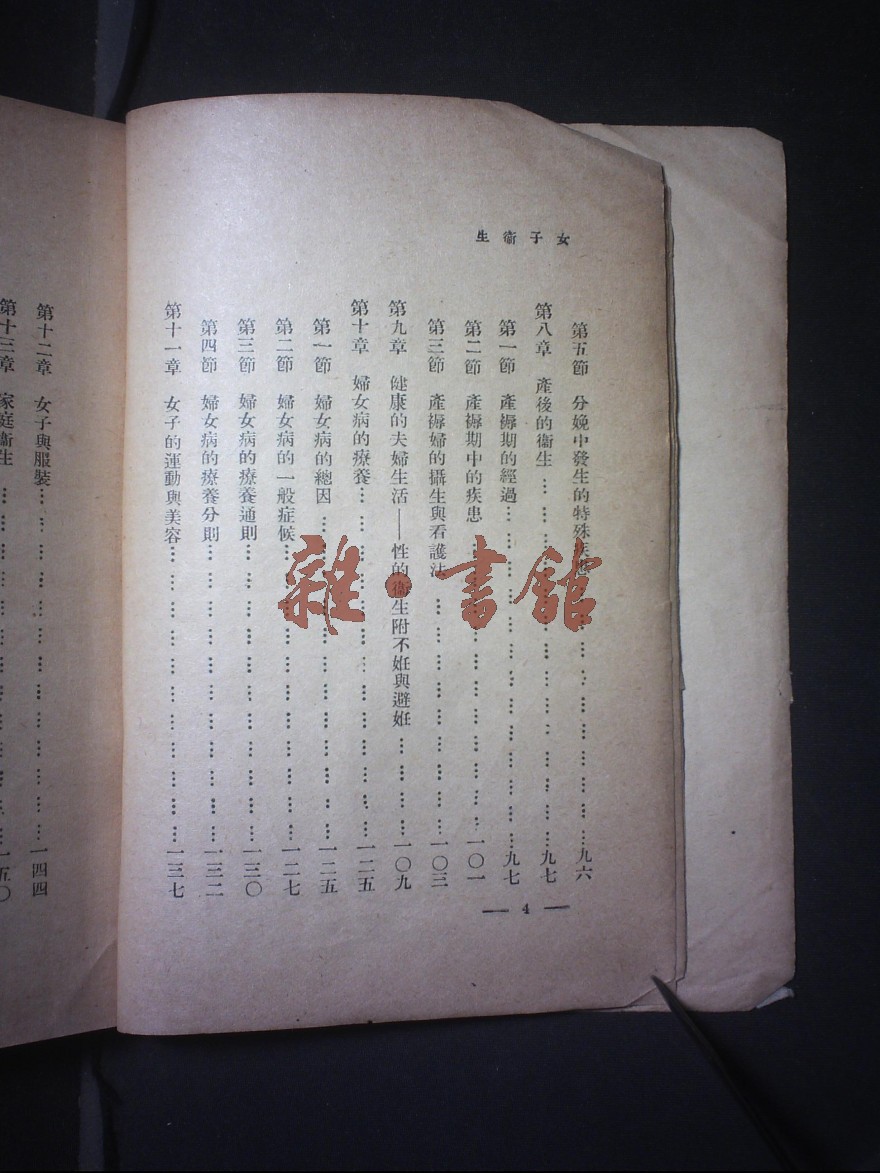 女子衞生
第五節 分娩中發生的特殊疾患……九六
第八章 產後的衞生……九七
第一節 產褥期的經過……九七
第二節 產褥期中的疾患……一〇一
第三節 產褥婦的攝生與看護法……一〇三
第九章 健康的夫婦生活——性的衞生附不姙與避姙……一〇九
第十章 婦女病的療養……一二五
第一節 婦女病的總因……一二五
第二節 婦女病的一般症候……一二七
第三節 婦女病的療養通則……一三〇
第四節 婦女病的療養分則……一三二
第十一章 女子的運動與美容……一三七
— 4 —
第十二章 女子與服裝……一四四
第十三章 家庭衞生……一五〇
雜·書館